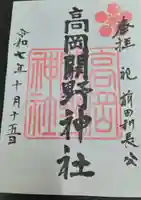 奉拝 祀 前田利長公
高岡関野神社
令和七年十月十五日
高岡
神社